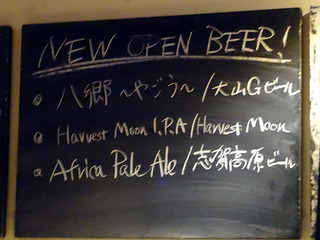 NEW OPEN BEER!
八郷 〜やごう〜/大山Gビール
Harvest Moon I.P.A/Harvest Moon
Africa Pale Ale/志賀高原ビール